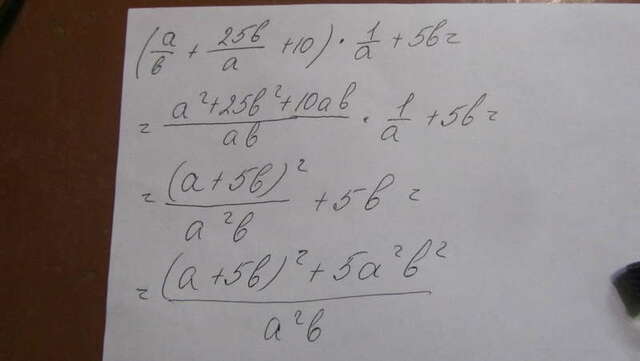 (a/b + 25b/a + 10) · 1/a + 5b =
= (a² + 25b² + 10ab)/(ab) · 1/a + 5b =
= (a + 5b)²/(a²b) + 5b =
= ((a + 5b)² + 5a²b²)/(a²b)